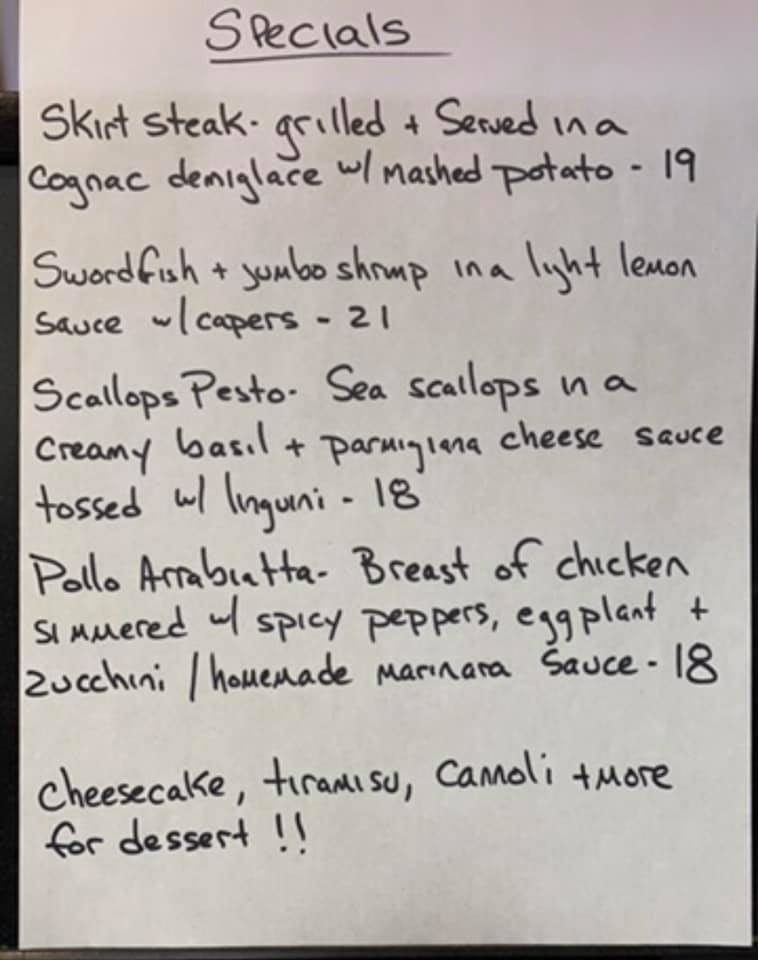 Specials
Skirt steak- grilled + Served in a
Cognac demiglace w/ Mashed potato - 19
Swordfish + jumbo shrimp in a light lemon
Sauce w/ capers - 21
Scallops Pesto- Sea scallops in a
Creamy basil + parmigiana cheese sauce
tossed w/ linguini - 18
Pollo Arrabiatta- Breast of chicken
simmered w/ spicy peppers, eggplant +
Zucchini / homemade marinara Sauce - 18
Cheesecake, tiramisu, Cannoli + more
for dessert !!